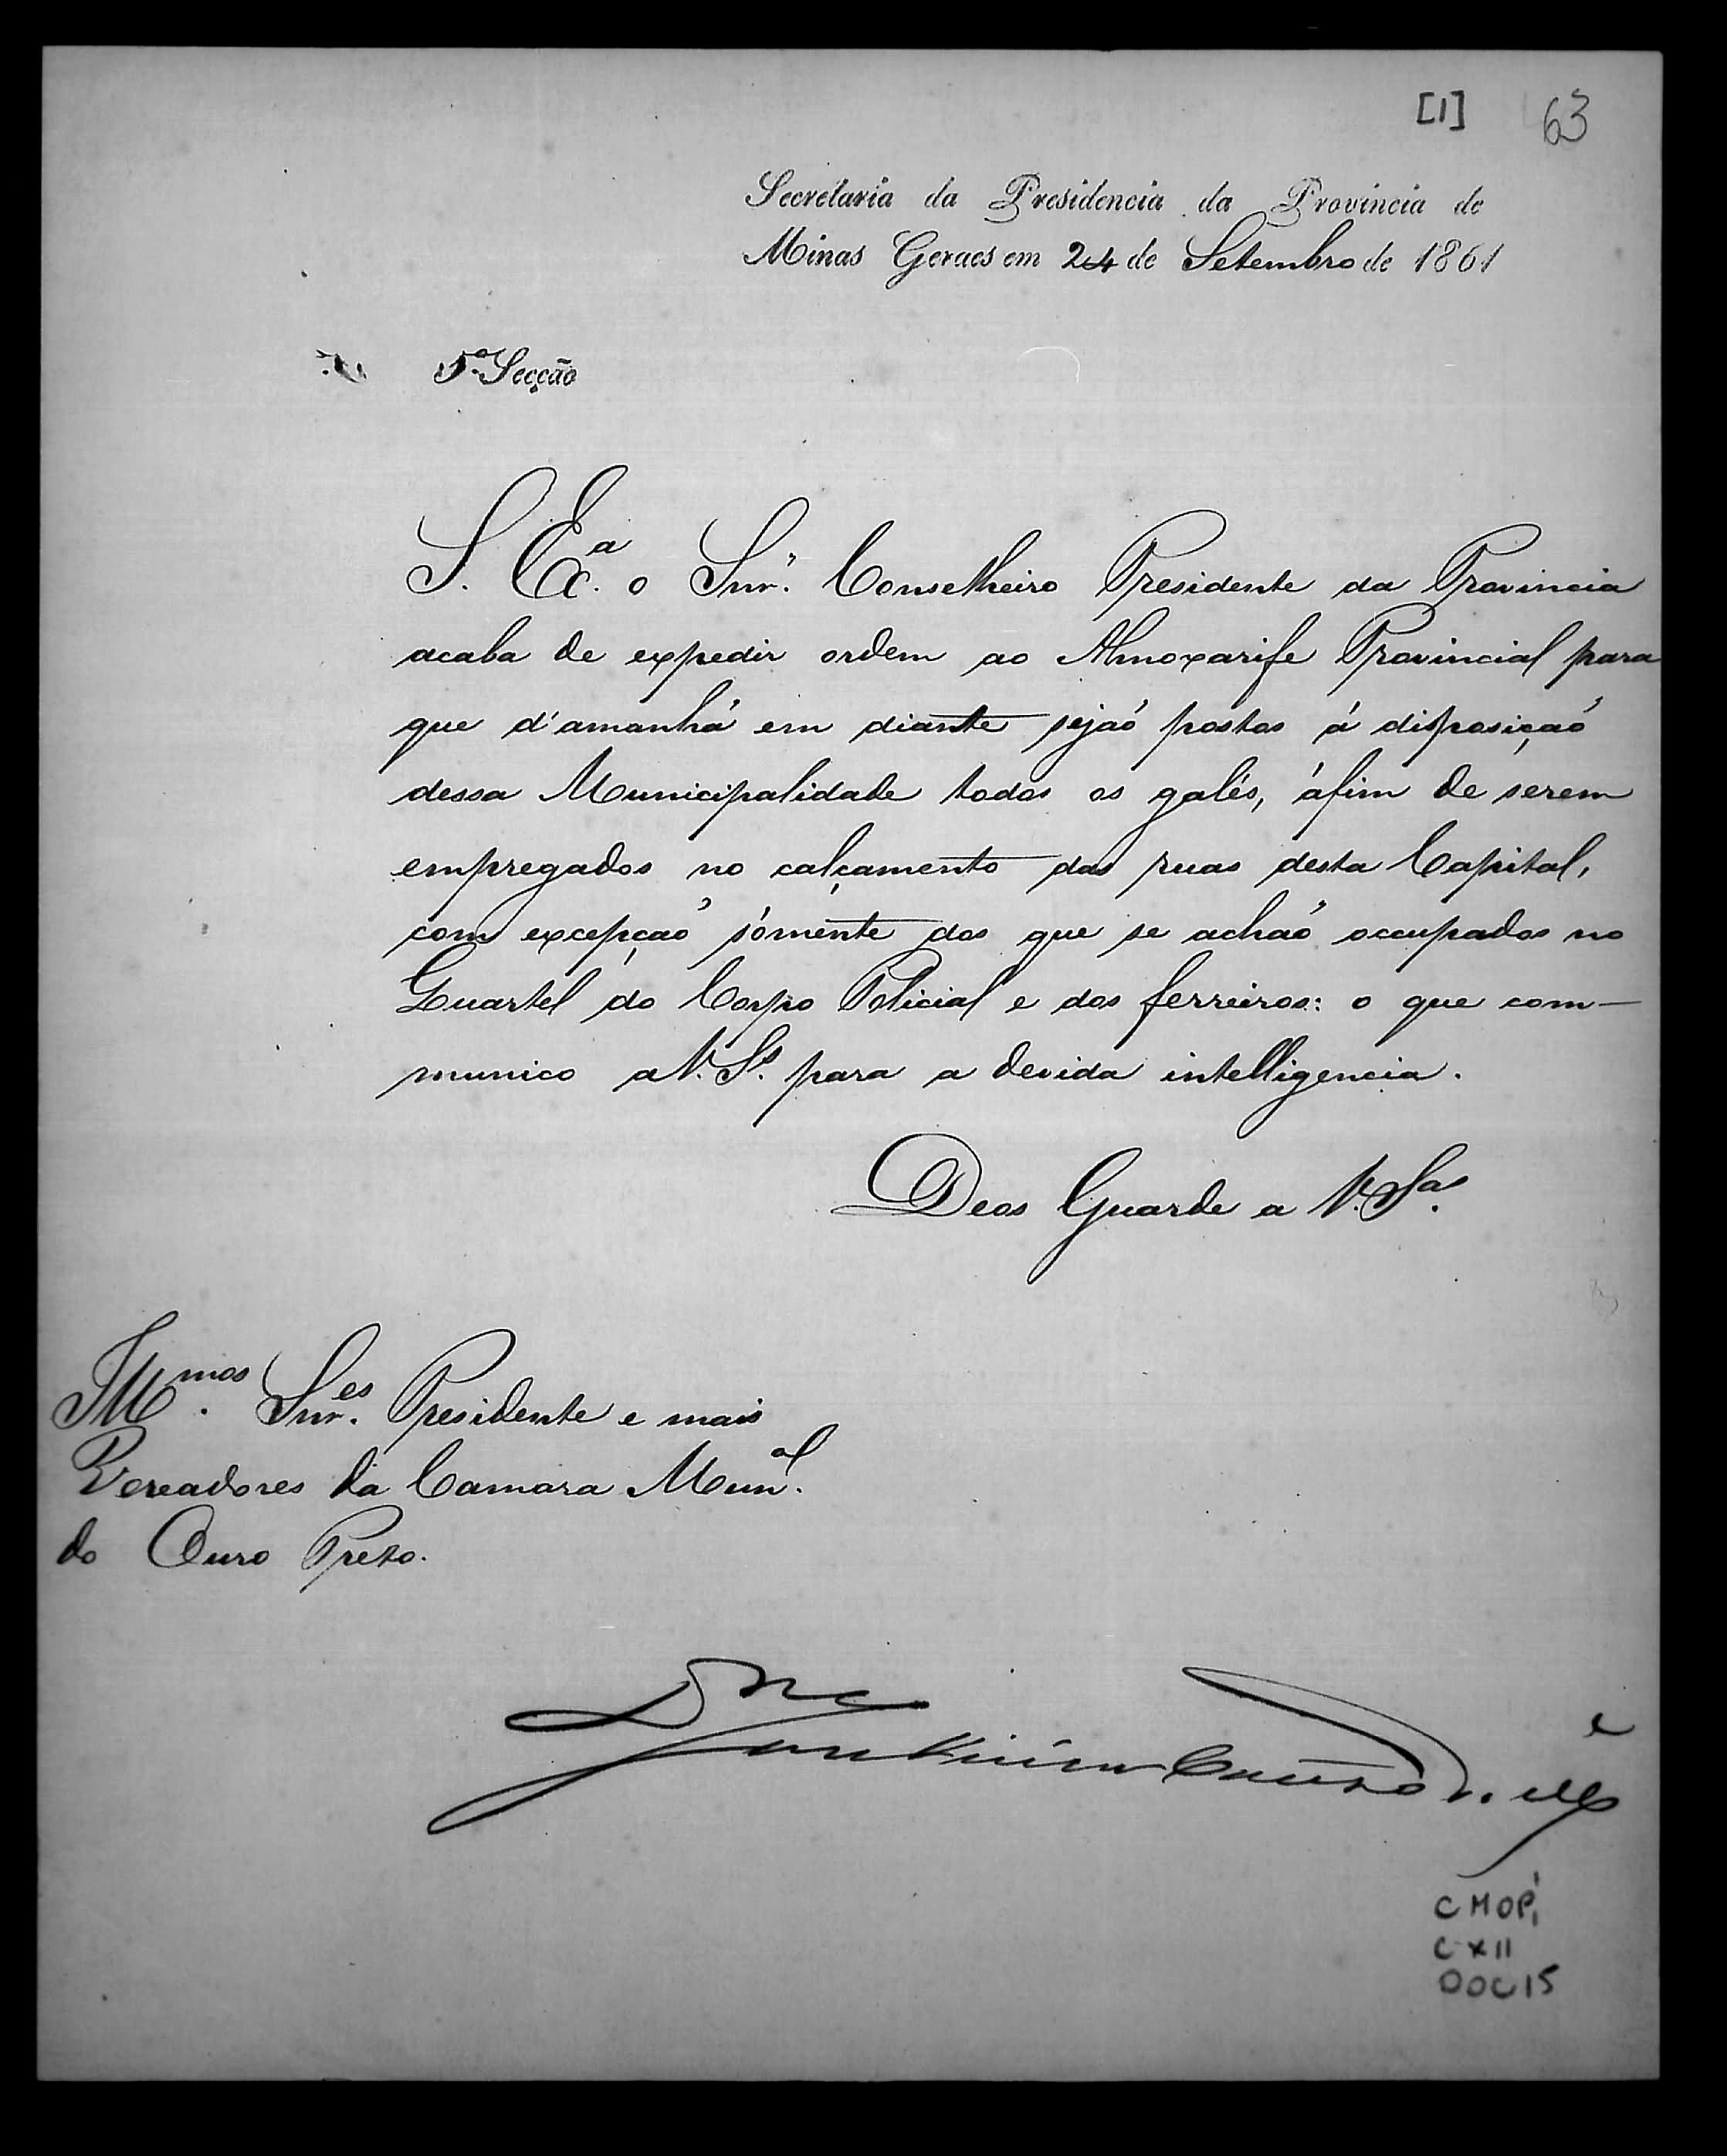 [1] 63
Secretaria da Presidencia da Provincia de
Minas Geraes em 24 de Setembro de 1861
5.ª Secção
S. Ex.ª o Snr. Conselheiro Presidente da Provincia
acaba de expedir ordem ao Almoxarife Provincial para
que d'amanhã em diante sejaõ postos á disposiçaõ
dessa Municipalidade todos os galés, áfim de serem
empregados no calçamento das ruas desta Capital,
com excepçaõ sómente dos que se achaõ occupados no
Quartel do Corpo Policial e dos ferreiros: o que com-
munico a V. S.ˢ para a devida intelligencia.
Deos Guarde a V. S.ᵃˢ
Ill.ᵐᵒˢ Snr.ᵉˢ Presidente e mais
Vereadores da Camara Mun.ᵃˡ
do Ouro Preto.
CMOP,
CXII
DOC15